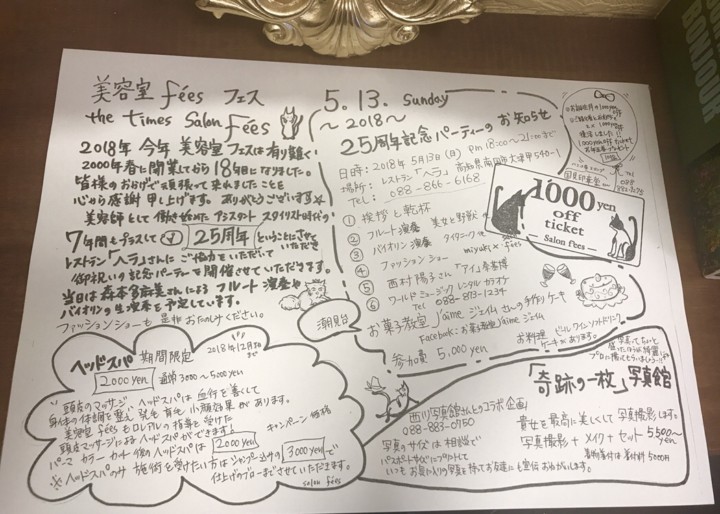 美容室 fées フェス
the times Salon Fées
2018年 今年 美容室 フェスは有り難く
2000年春に開業してから18年目になりました。
皆様のおかげで頑張って来れましたことを
心から感謝申し上げます。ありがとうございます☆
美容師として働き始めた アシスタント スタイリスト時代の
7年間もプラスして 25周年 ということにさせていただき
レストラン「ヘラ」さんに ご協力をいただいて
御祝いの記念パーティーを開催させていただきます。
当日は森本多麻美さんによる フルート演奏や
バイオリンの生演奏を予定しています。
ファッションショーも是非おたのしみください。
5.13. Sunday
~2018~
25周年記念パーティーのお知らせ
日時:2018年5月13日(日) pm 18:00~21:00まで
場所:レストラン「ヘラ」高知県南国市大津甲540-1
TEL: 088-866-6168
① 挨拶と乾杯
② フルート演奏 美女と野獣
③ バイオリン演奏 タイタニック
④ ファッションショー miyuki × fées
⑤ 西村陽子さん「アイ」
⑥ ワールドミュージック レンタル カラオケ
Tel 088-873-1234
お菓子教室 J'aime ジェイムさんの手作りケーキ
Facebook: お菓子教室J'aime ジェイム
参加費 5,000yen
お料理 ビール ワイン ソフトドリンク
ケーキがあります。
1000 yen
off
ticket
- Salon fees -
潮見台
ヘッドスパ 期間限定 2018年12月30まで
2000yen 通常3000~5000yen
頭皮のマッサージ ヘッドスパは血行を善くして
身体の体調を整い 発毛 育毛 小顔効果があります。
美容室 féesもロレアルの指導を受けた
頭皮マッサージによる ヘッドスパができます♪ キャンペーン価格
パーマ カラー カット後のヘッドスパは 2000yen
※ヘッドスパのみ 施術を受けたい方はシャンプー込みの 3000yenで
仕上げのブローまでさせていただきます。
salon fées
「奇跡の一枚」写真館
西川写真館さんとのコラボ企画!
088-883-0750
貴女を最高に美しくして写真撮影します。
写真のサイズは相談で
写真撮影+メイク+セット 5,500~yen
着物着付は着付料5000円